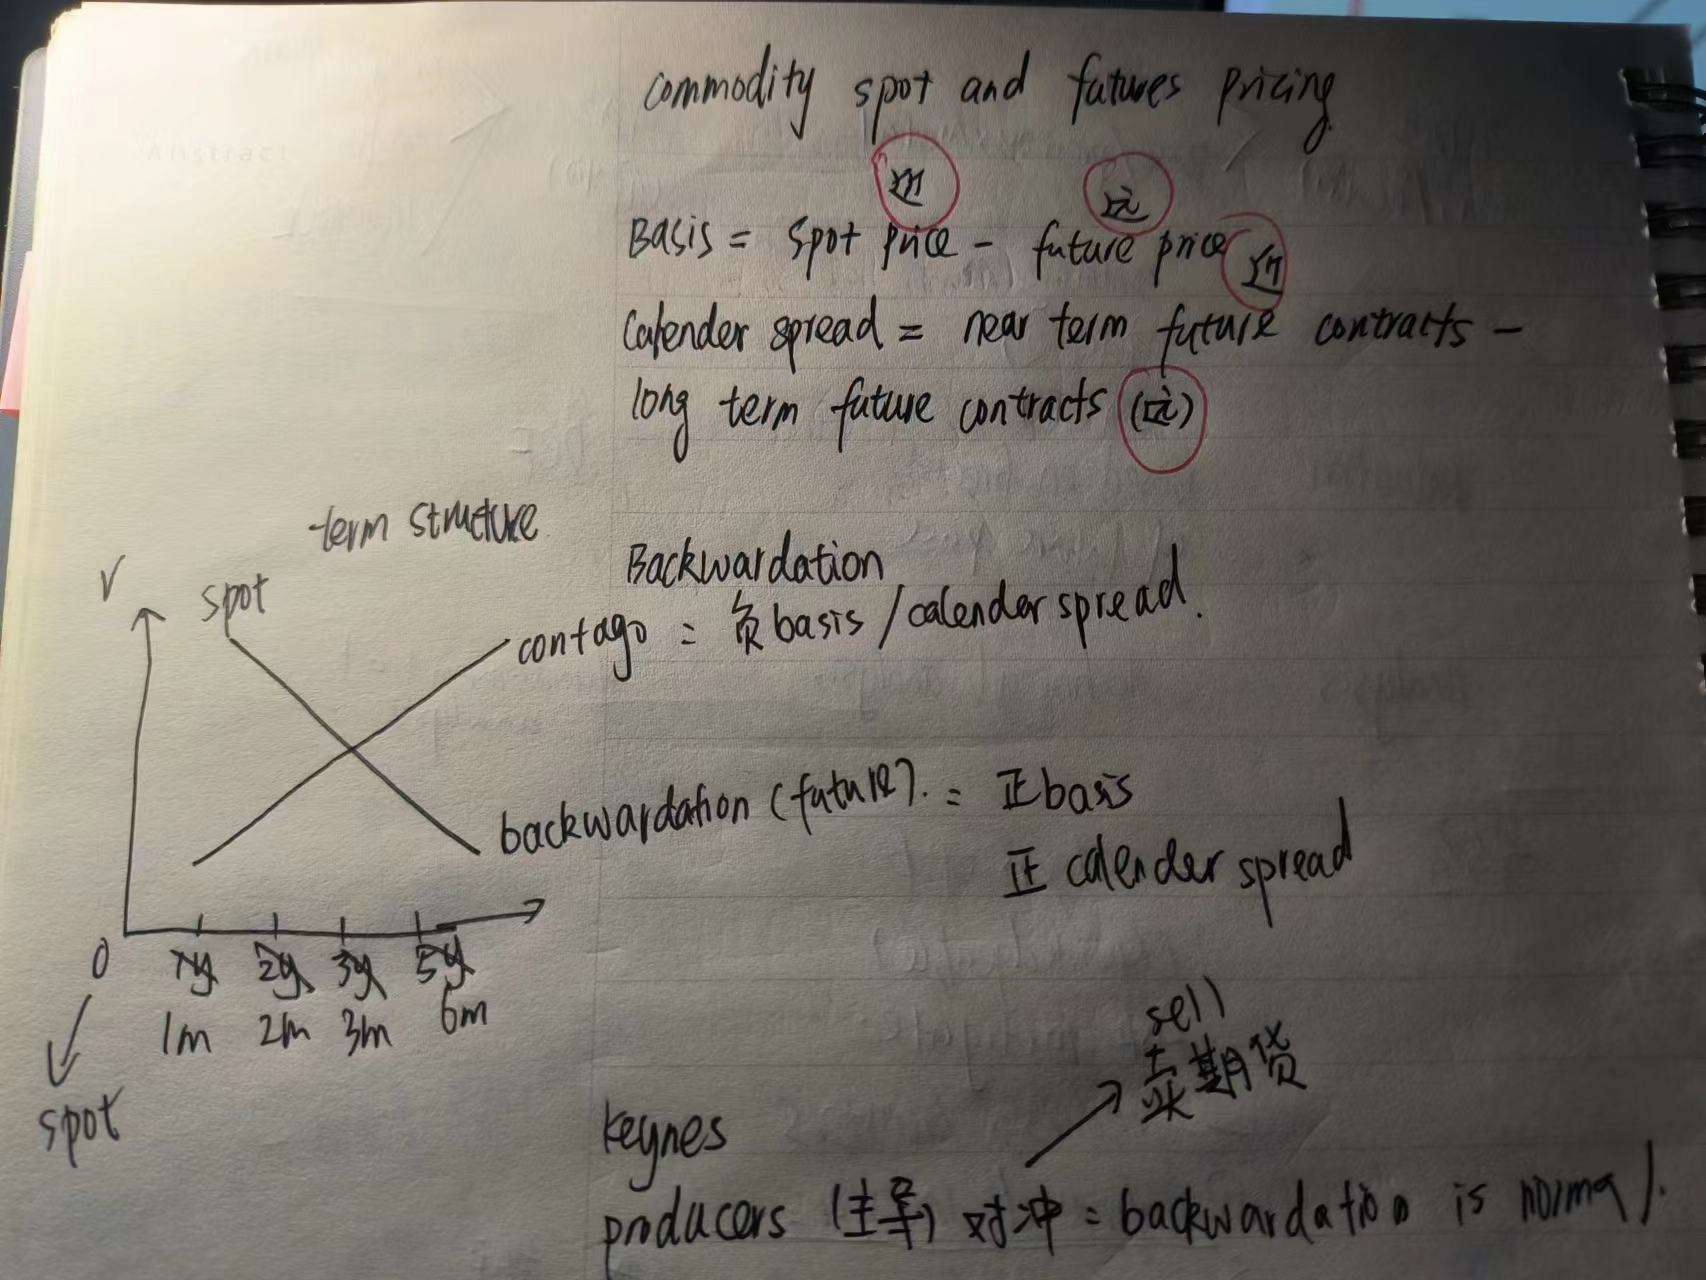 commodity spot and futures pricing
近 远
Basis = Spot price - future price 近
Calender spread = near term future contracts -
long term future contracts (远)
term structure
r
spot
Backwardation
contago = 负 basis / calender spread.
backwardation (future). = 正 basis
正 calender spread
0 1y 2y 3y 5y
1m 2m 3m 6m
spot
sell
卖期货
Keynes
producers (主导) 对冲 = backwardation is normal.